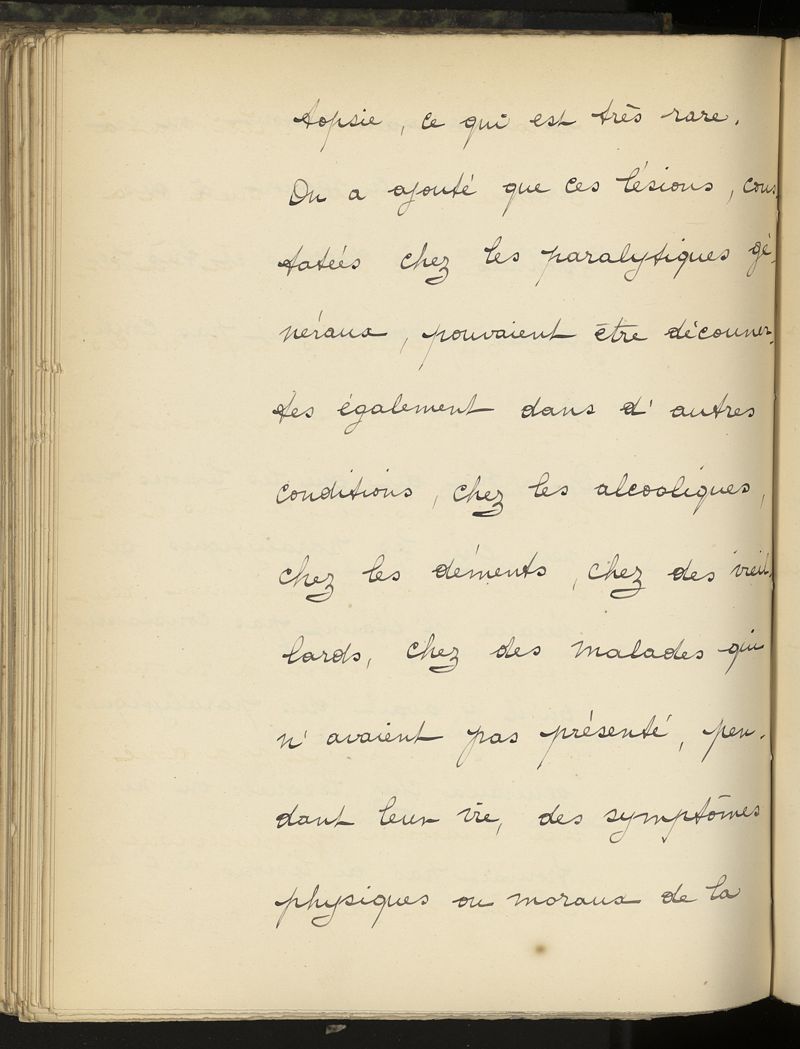 topsie, ce qui est très rare.
On a ajouté que ces lésions, cons-
tatées chez les paralytiques gé-
néraux, pouvaient être découver-
tes également dans d'autres
conditions, chez les alcooliques,
chez les déments, chez des vieil-
lards, chez des malades qui
n'avaient pas présenté, pen-
dant leur vie, des symptômes
physiques ou moraux de la